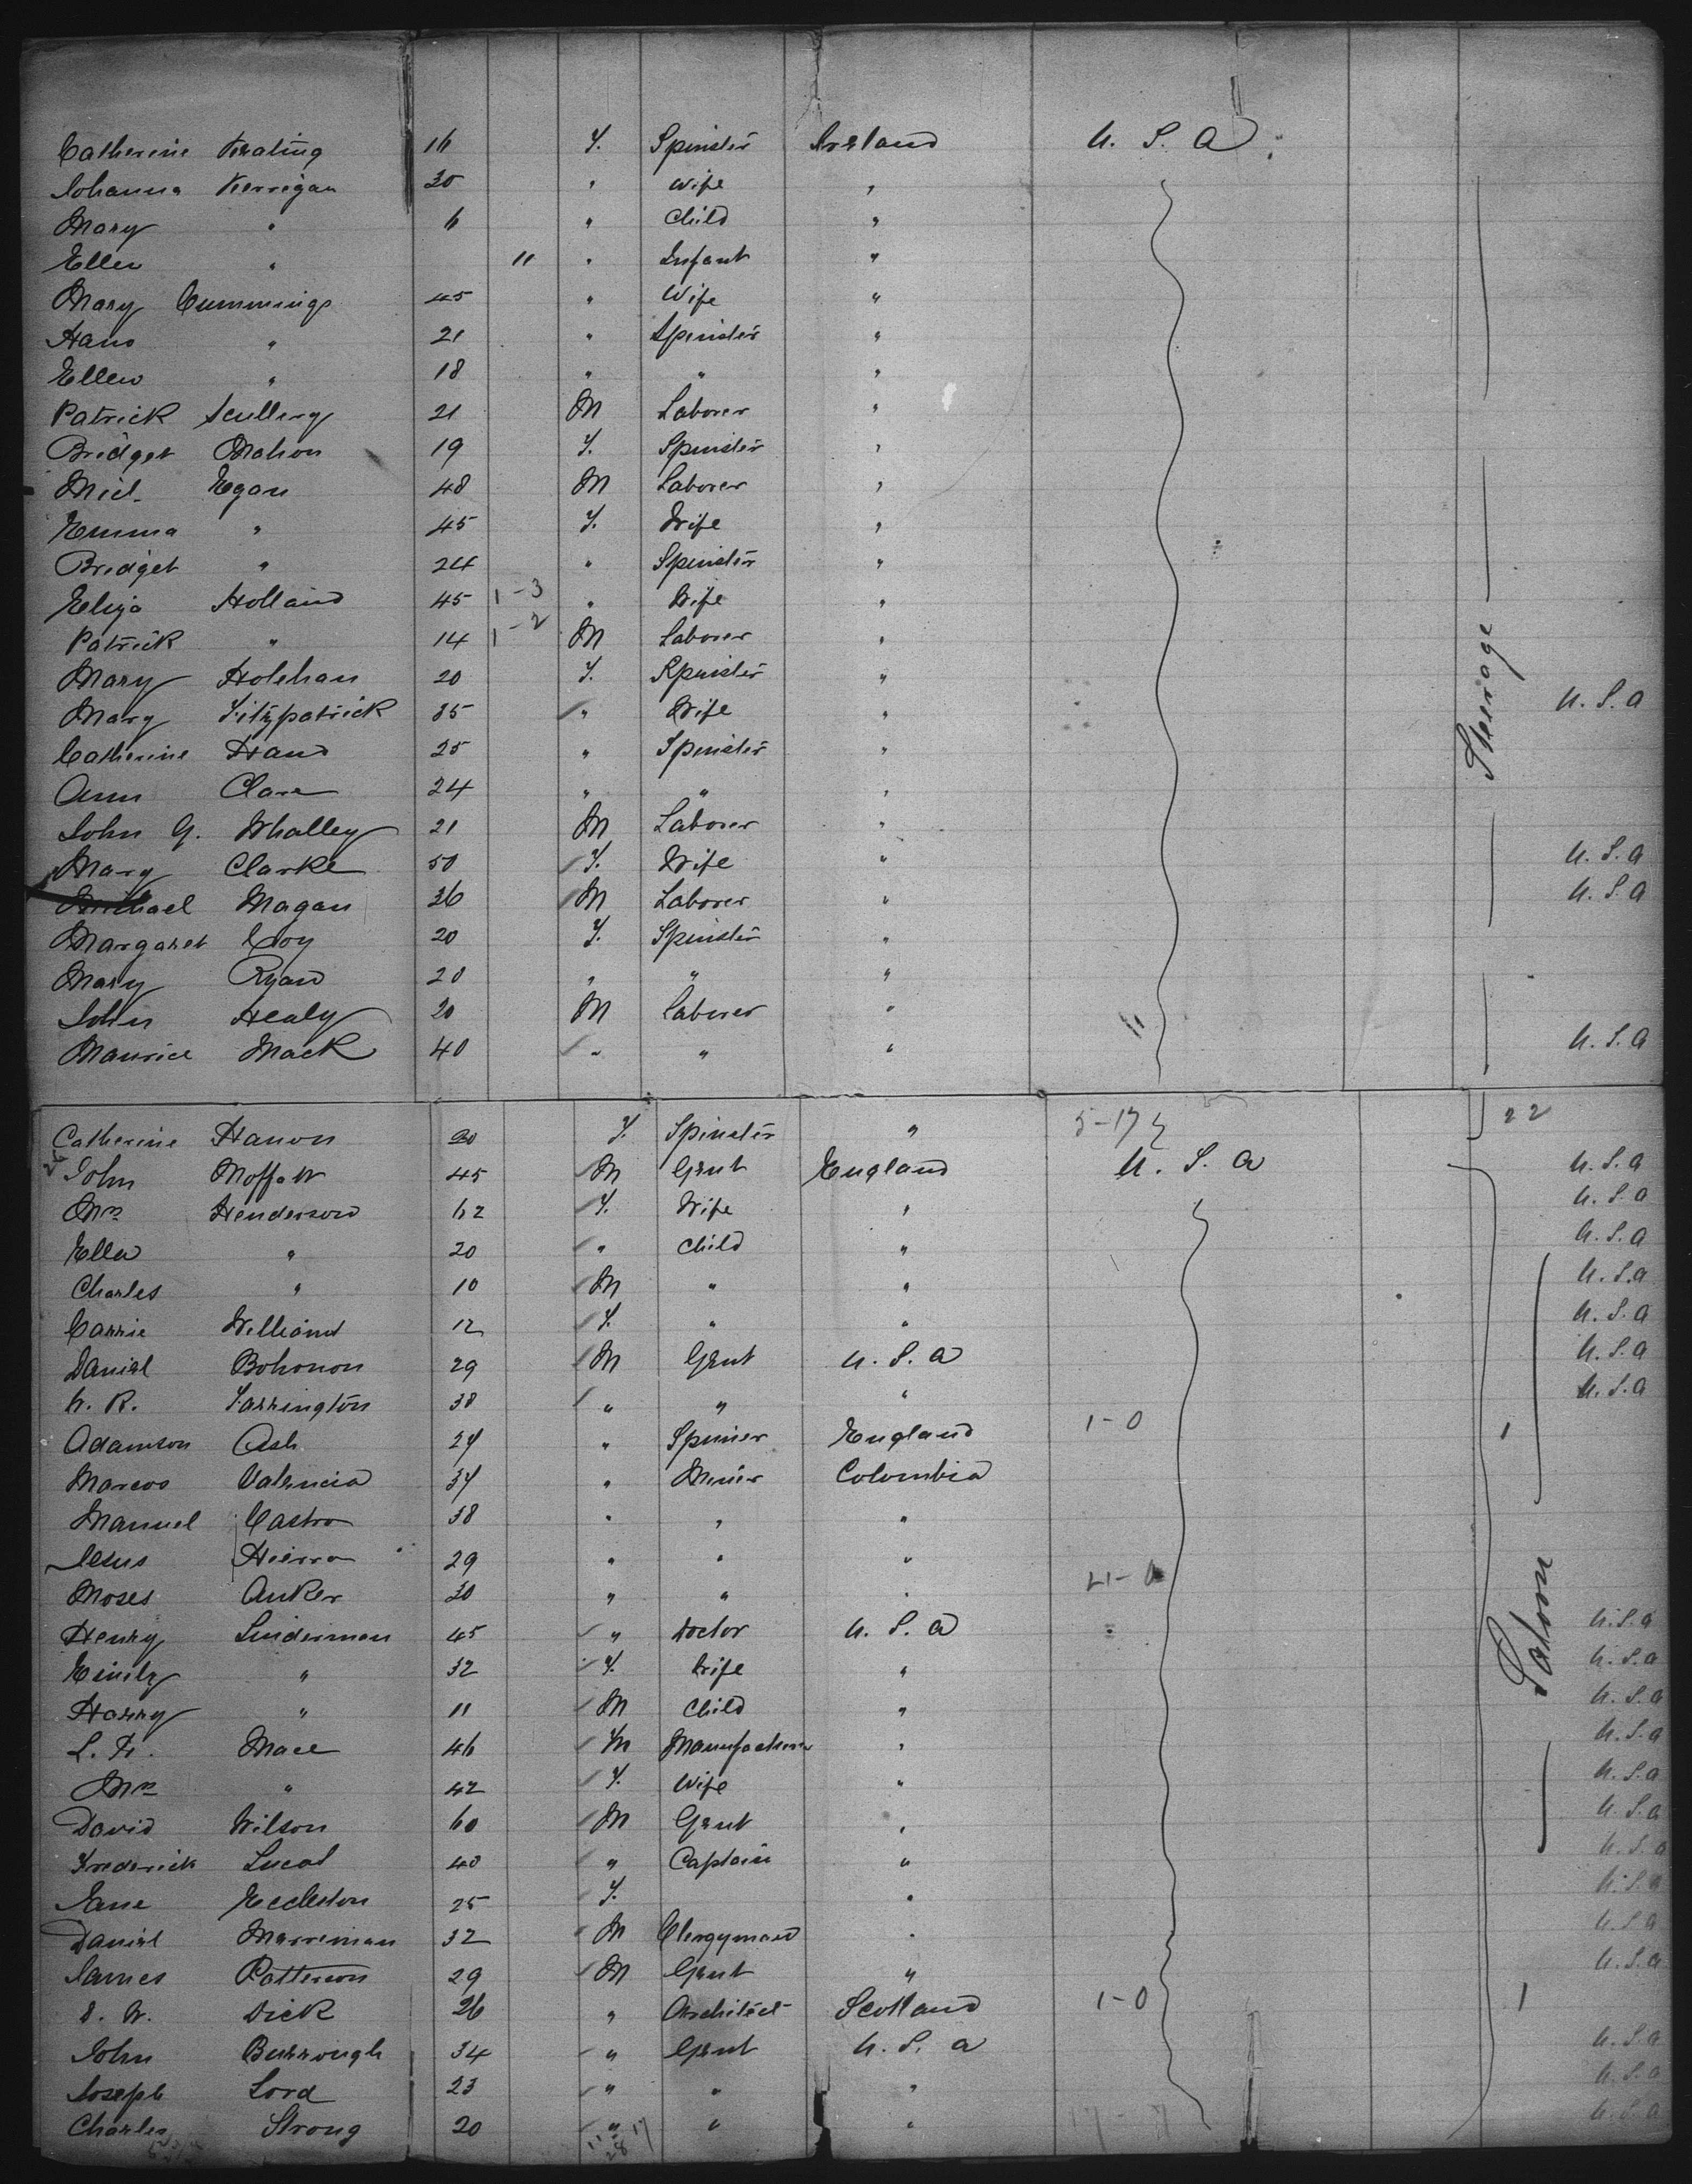 Catherine Keating 16 F. Spinster Ireland U. S. A
Johanna Kerrigan 30 " Wife "
Mary " 6 " Child "
Ellen " 11 " Infant "
Mary Cummings 45 " Wife "
Hano " 21 " Spinster "
Ellen " 18 " " "
Patrick Scullery 21 M Laborer "
Bridget Mahon 19 F. Spinster "
Micl. Egan 48 M Laborer "
Emma " 45 F. Wife "
Bridget " 24 " Spinster "
Eliza Holland 45 1-3 " Wife "
Patrick " 14 1-2 M Laborer "
Mary Holehan 20 F. Spinster " Steerage
Mary Fitzpatrick 35 " Wife " U. S. A
Catherine Hand 25 " Spinster "
Ann Clare 24 " " "
John G. Whalley 21 M Laborer "
Mary Clarke 50 F. Wife " U. S. A
Michael Magan 36 M Laborer " U. S. A
Margaret Coy 20 F. Spinster "
Mary Ryan 20 " " "
John Healy 20 M Laborer "
Maurice Mack 40 " " " U. S. A
Catherine Hanon 20 F. Spinster " 5-17 22
John Moffatt 45 M Gent England U. S. A U. S. A
Mrs Henderson 62 F. Wife " U. S. A
Ella " 20 " Child " U. S. A
Charles " 10 M " " U. S. A
Carrie Williams 12 F. " " U. S. A
Daniel Bohonon 29 M Gent U. S. A U. S. A
W. R. Farrington 38 " " " U. S. A
Adamson Ash 24 " Spinner England 1-0 1
Marcos Valencia 34 " Miner Colombia
Manuel Castro 38 " " "
Jesus Hierro 29 " " "
Moses Anker 30 " " "
Henry Linderman 45 " Doctor U. S. A Saloon U. S. A
Emily " 32 F. Wife " U. S. A
Harry " 11 M Child " U. S. A
L. H. Mace 46 M Manufacturer " U. S. A
Mrs " 42 F. Wife " U. S. A
David Wilson 60 M Gent " U. S. A
Frederick Lucas 40 " Captain " U. S. A
Jane Eccleston 25 F. " U. S. A
Daniel Merriman 32 M Clergyman " U. S. A
James Patterson 29 M Gent " U. S. A
W. Dick 26 " Architect Scotland 1-0 1
John Burrough 34 " Gent U. S. A U. S. A
Joseph Lord 23 " " " U. S. A
Charles Strong 20 " " " U. S. A